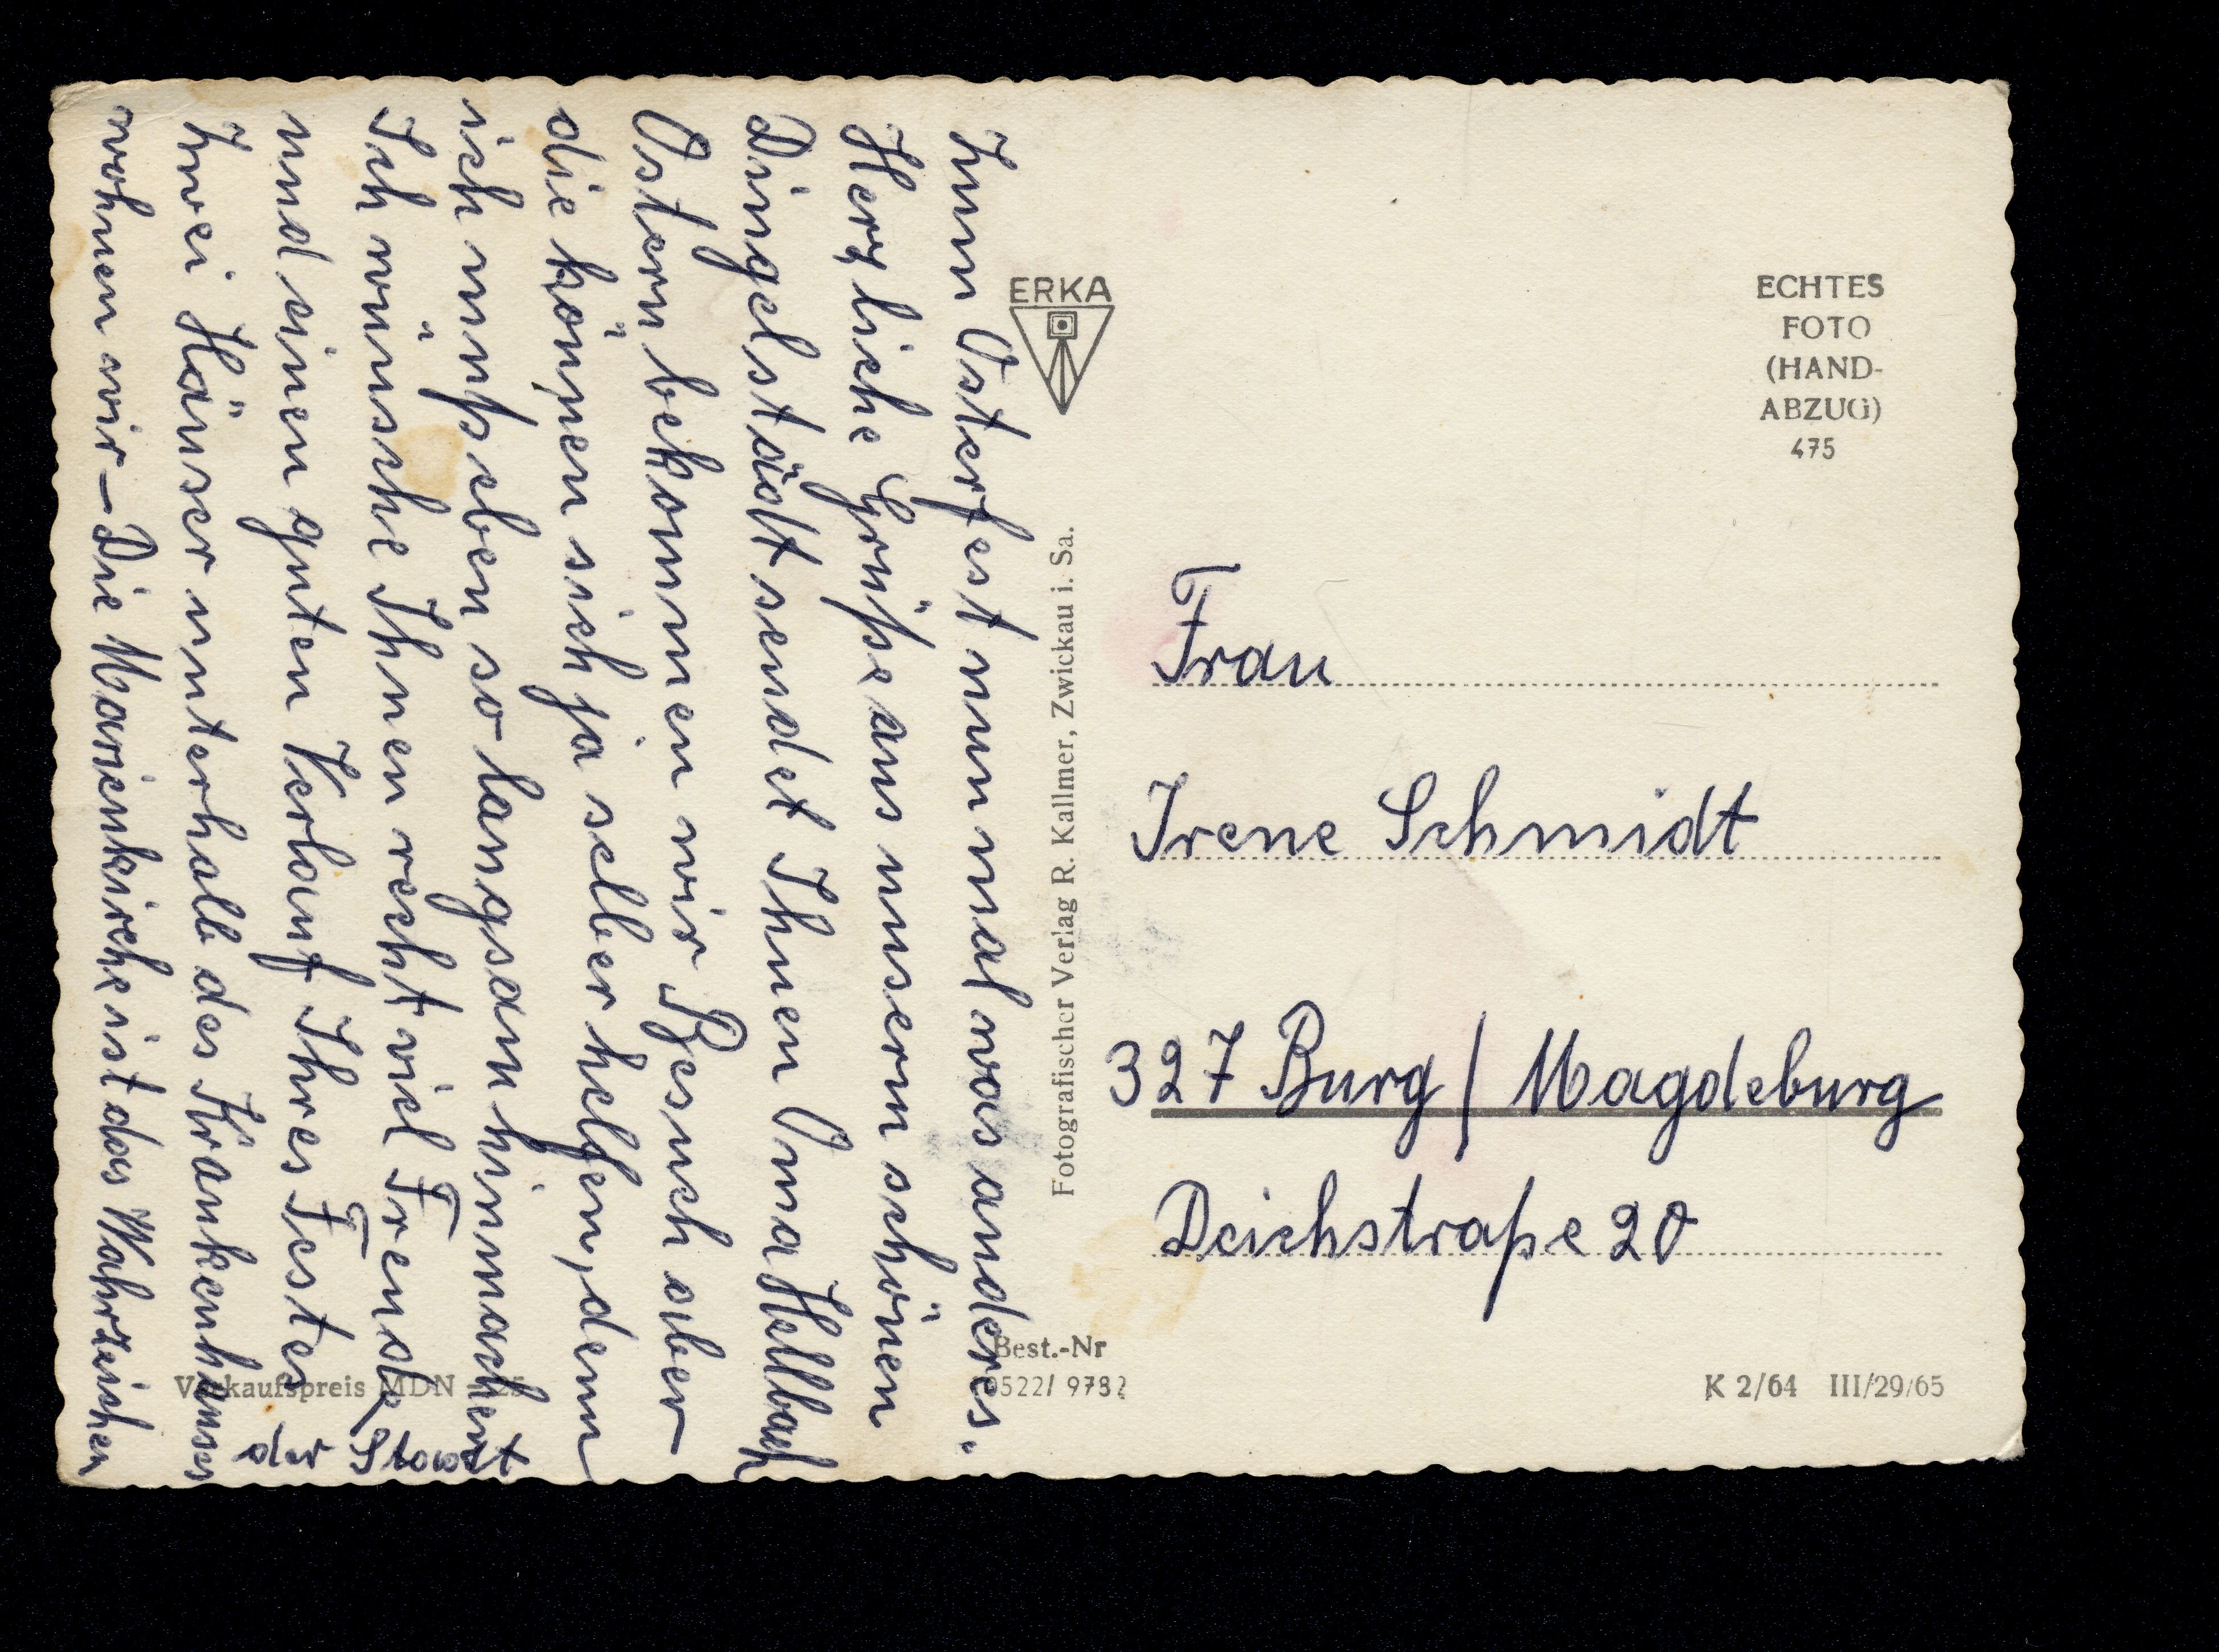 Zum Osterfest nun mal was anderes.
Herzliche Grüße aus unserm schönen
Dingelstädt sendet Ihnen Oma Hellbach
Ostern bekommen wir Besuch aber
die können sich ja selber helfen, denn
ich muß eben so langsam hinmachen
Ich wünsche Ihnen recht viel Freude
und einen guten Verlauf Ihres Festes
Zwei Häuser unterhalb des Krankenhauses
wohnen wir – Die Marienkirche ist das Wahrzeichen
der Stadt
ERKA
Fotografischer Verlag R. Kallmer, Zwickau i. Sa.
ECHTES
FOTO
(HAND-
ABZUG)
475
Frau
Irene Schmidt
327 Burg / Magdeburg
Deichstraße 20
Verkaufspreis MDN
Best.-Nr
0522/ 9782
K 2/64 III/29/65